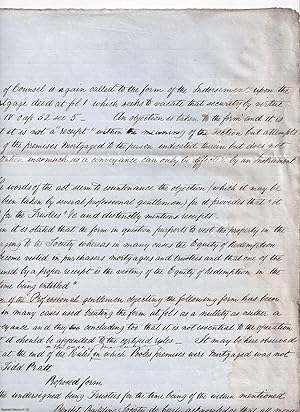 of Counsel is again called to the form of the Indorsement upon the
gage deed at fol 1 which seeks to vacate that security by virtue
IV cap 32 sec 5 — An objection is taken to the form and it is
it is not a "receipt" within the meaning of the section but attempts
the premises mortgaged to the person entitled thereto but does not
taken inasmuch as a conveyance can only be by an Instrument
words of the act seem to countenance the objection (which it may be
been taken by several professional gentlemen) for it provides that "it
for the Trustees" &c and distinctly mentions receipts
in it is stated that the form in question purports to vest the property in the
to the Society whereas in many cases the Equity of Redemption
become vested in purchasers mortgagees and trustees and that one of the
by a proper receipt is the vesting of the Equity of Redemption in the
time being entitled"
of the Professional gentlemen objecting the following form has been
in many cases used treating the form at fol 1 as a nullity as neither a
and they too concluding too that it is not essential to the operation
it should be appended to the certified rules — It may be here observed
at the end of the Rules on which Pooles premises were mortgaged was not
Tidd Pratt
Proposed form
the undersigned being Trustees for the time being of the within mentioned
Benefit Building Society do hereby acknowledge that